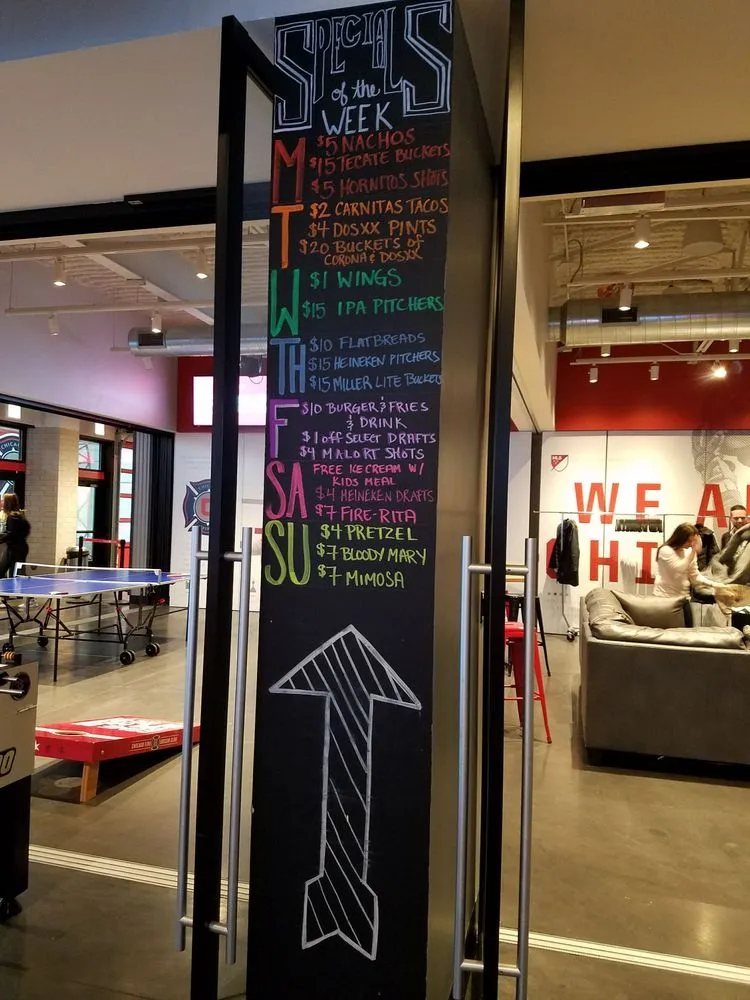 SPECIALS
of the
WEEK
M
$5 NACHOS
$15 TECATE BUCKETS
$5 HORNITOS SHOTS
T
$2 CARNITAS TACOS
$4 DOSXX PINTS
$20 BUCKETS OF
CORONA & DOSXX
W
$1 WINGS
$15 IPA PITCHERS
TH
$10 FLATBREADS
$15 HEINEKEN PITCHERS
$15 MILLER LITE BUCKETS
F
$10 BURGER & FRIES
& DRINK
$1 off SELECT DRAFTS
$4 MALORT SHOTS
SA
FREE ICE CREAM W/
KIDS MEAL
$4 HEINEKEN DRAFTS
$7 FIRE-RITA
SU
$4 PRETZEL
$7 BLOODY MARY
$7 MIMOSA
WE A
CHI